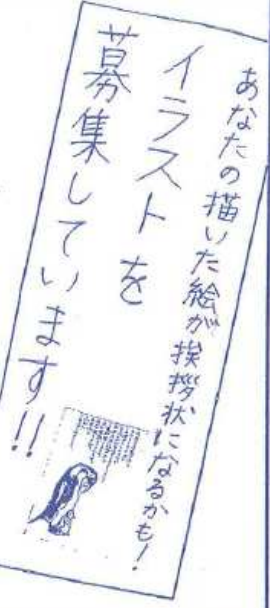 あなたの描いた絵が挨拶状になるかも!
イラストを
募集しています!!